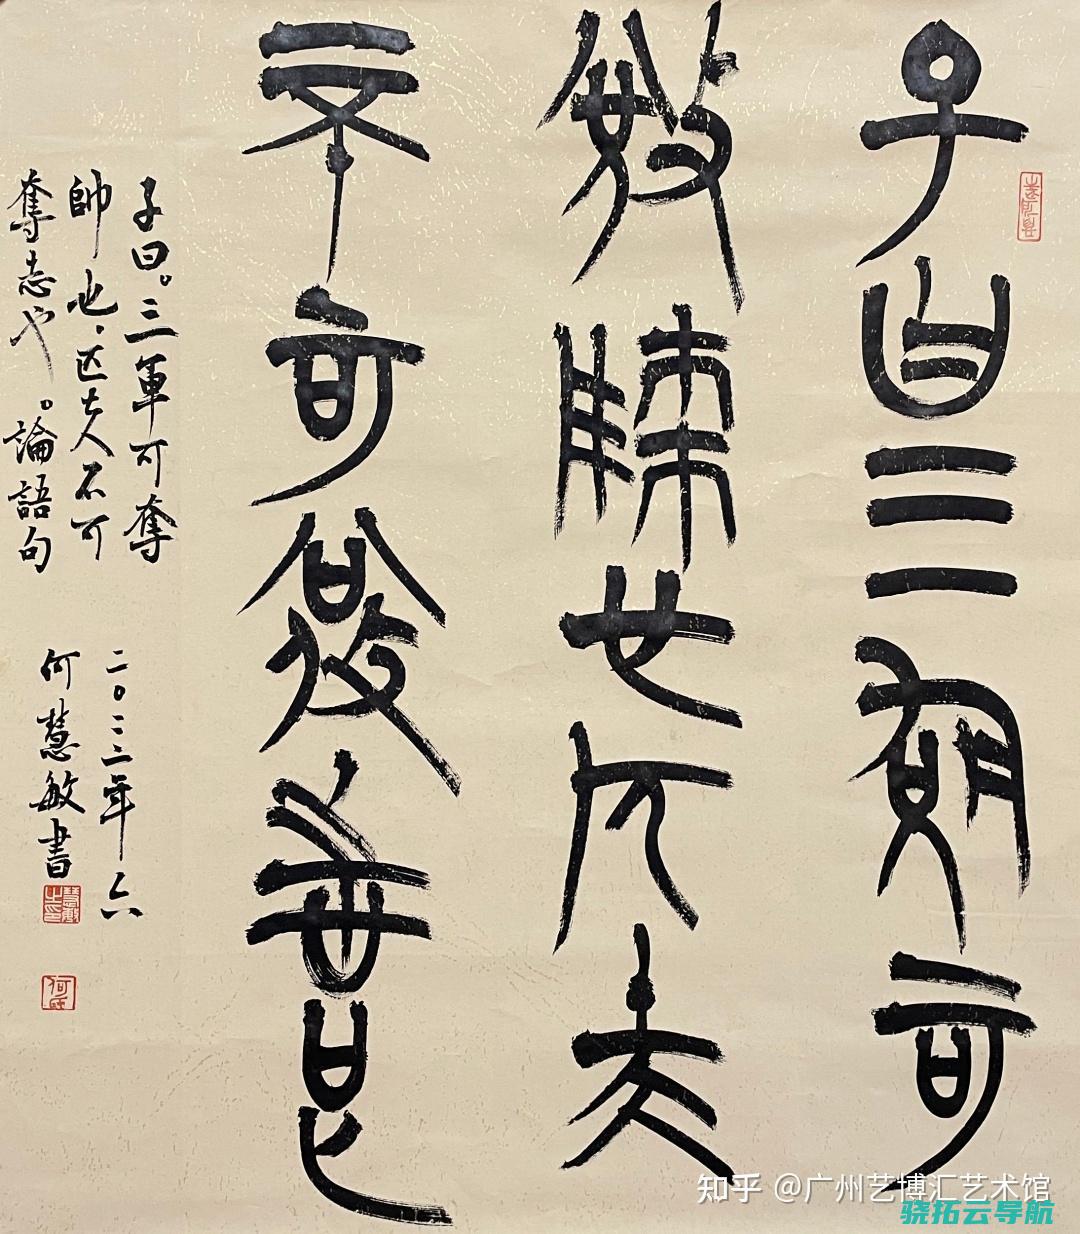 子曰三軍可
敓帥也匹夫
不可敓志也
子曰。三軍可奪
帥也、匹夫不可
奪志也。論語句
二〇二二年六
何慧敏書
慧敏之印
何氏
知乎 @广州艺博汇艺术馆
骁拓云导航